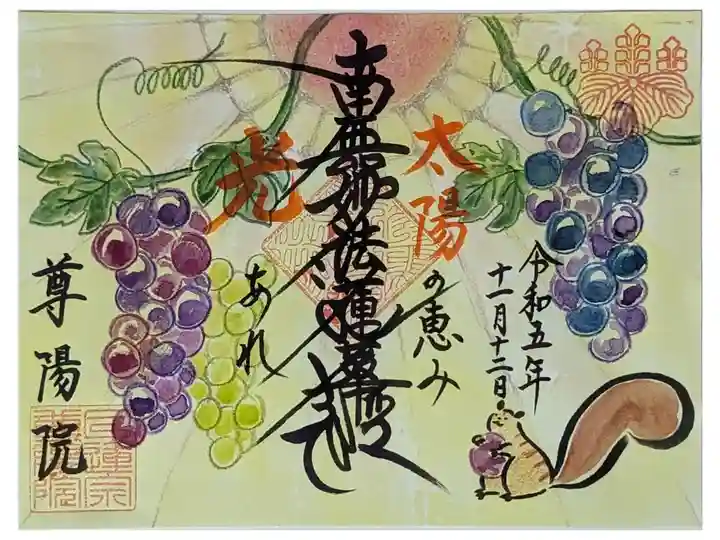 令和五年
十一月十二日
太陽の恵み
南無妙法蓮華経
光あれ
尊陽院